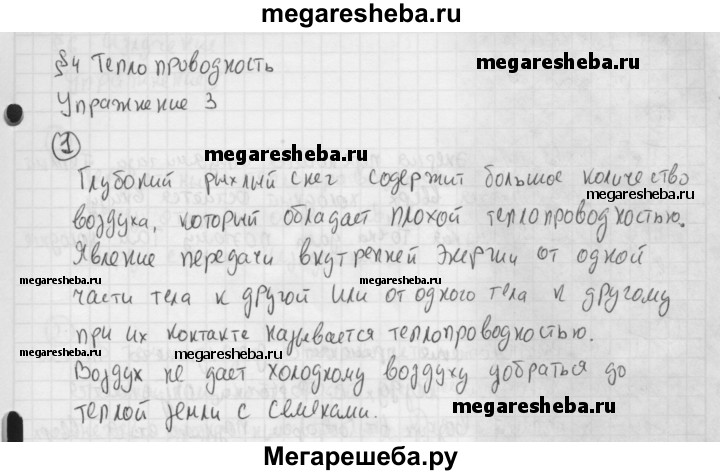 megaresheba.ru
§4 Теплопроводность
megaresheba.ru
Упражнение 3
① megaresheba.ru
Глубокий рыхлый снег содержит большое количество
воздуха, который обладает плохой теплопроводностью.
megaresheba.ru
Явление передачи внутренней энергии от одной
megaresheba.ru megaresheba.ru
части тела к другой или от одного тела к другому
при их контакте называется теплопроводностью.
megaresheba.ru megaresheba.ru
Воздух не дает холодному воздуху добраться до
теплой земли с семенами. megaresheba.ru
Мегарешеба.ру